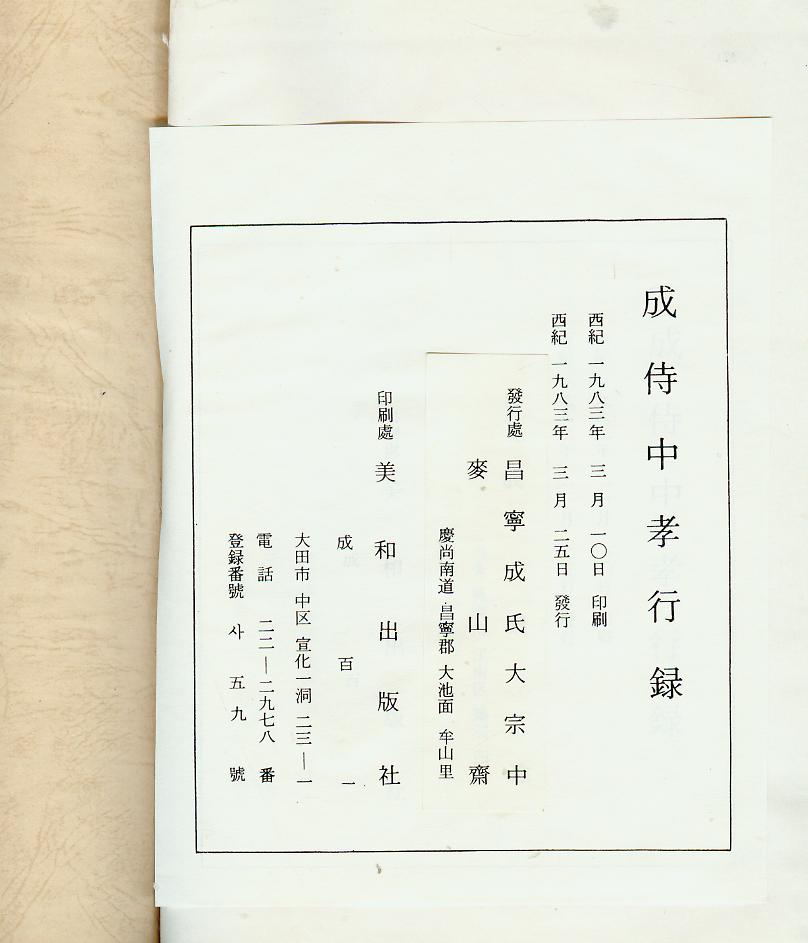 成侍中孝行録
西紀 一九八三年 三月 一〇日 印刷
西紀 一九八三年 三月 二五日 發行
發行處 昌寧成氏大宗中
麥山齋
慶尚南道 昌寧郡 大池面 牟山里
印刷處 美和出版社
成百一
大田市 中区 宣化一洞 二三—一
電話 二二—二九七八番
登録番號 사五九號